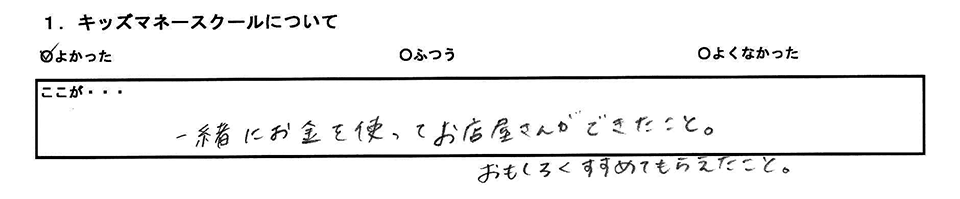 1. キッズマネースクールについて
○よかった ○ふつう ○よくなかった
ここが・・・
一緒にお金を使ってお店屋さんができたこと。
おもしろくすすめてもらえたこと。